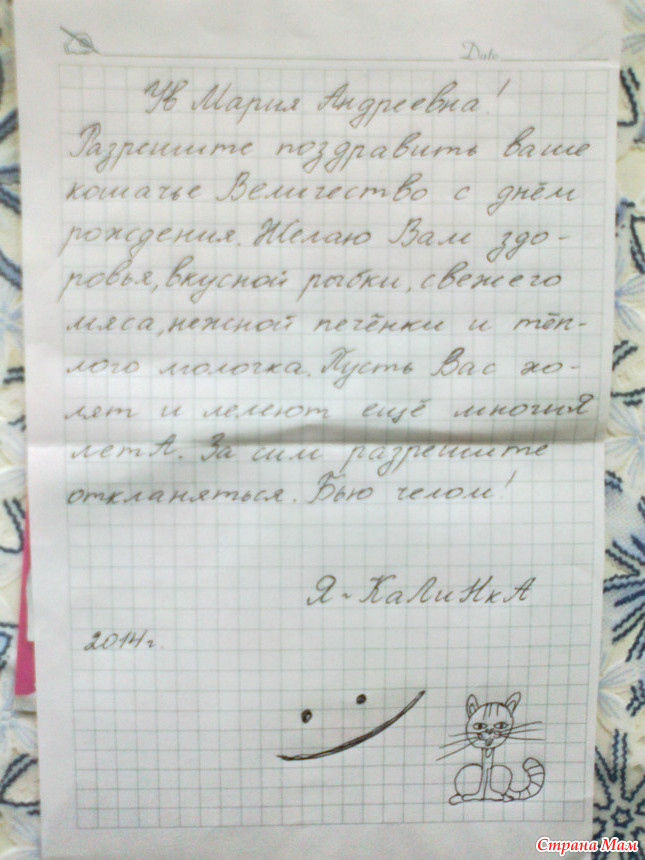 Date
Ув Мария Андреевна!
Разрешите поздравить ваше
кошачье Величество с днём
рождения. Желаю Вам здо-
ровья, вкусной рыбки, свежего
мяса, нежной печёнки и тёп-
лого молочка. Пусть Вас хо-
лят и лелеют ещё многиЯ
летА. За сим разрешите
откланяться. Бью челом!
Я ~ КаЛиНкА
2014г.
Страна Мам